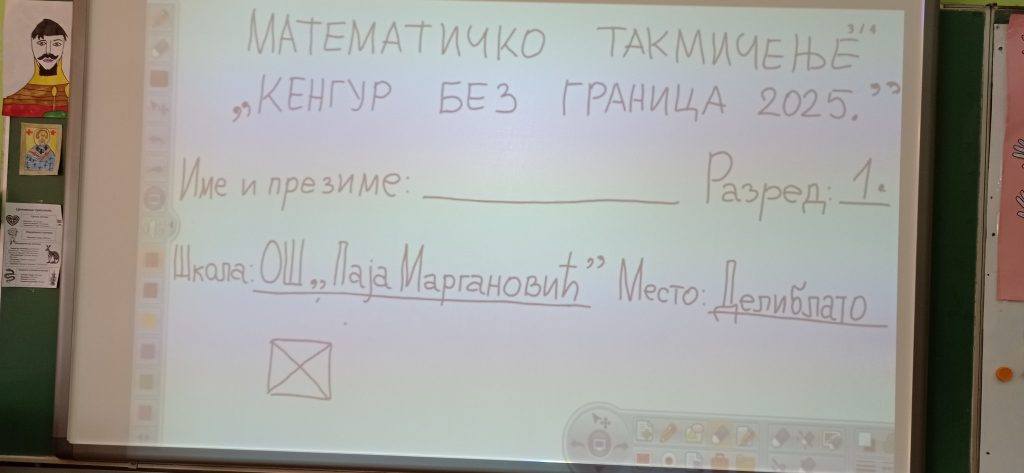 3/4
МАТЕМАТИЧКО ТАКМИЧЕЊЕ
„КЕНГУР БЕЗ ГРАНИЦА 2025.”
Име и презиме: ____________ Разред: 1.
Школа: ОШ „Паја Маргановић” Место: Делиблато